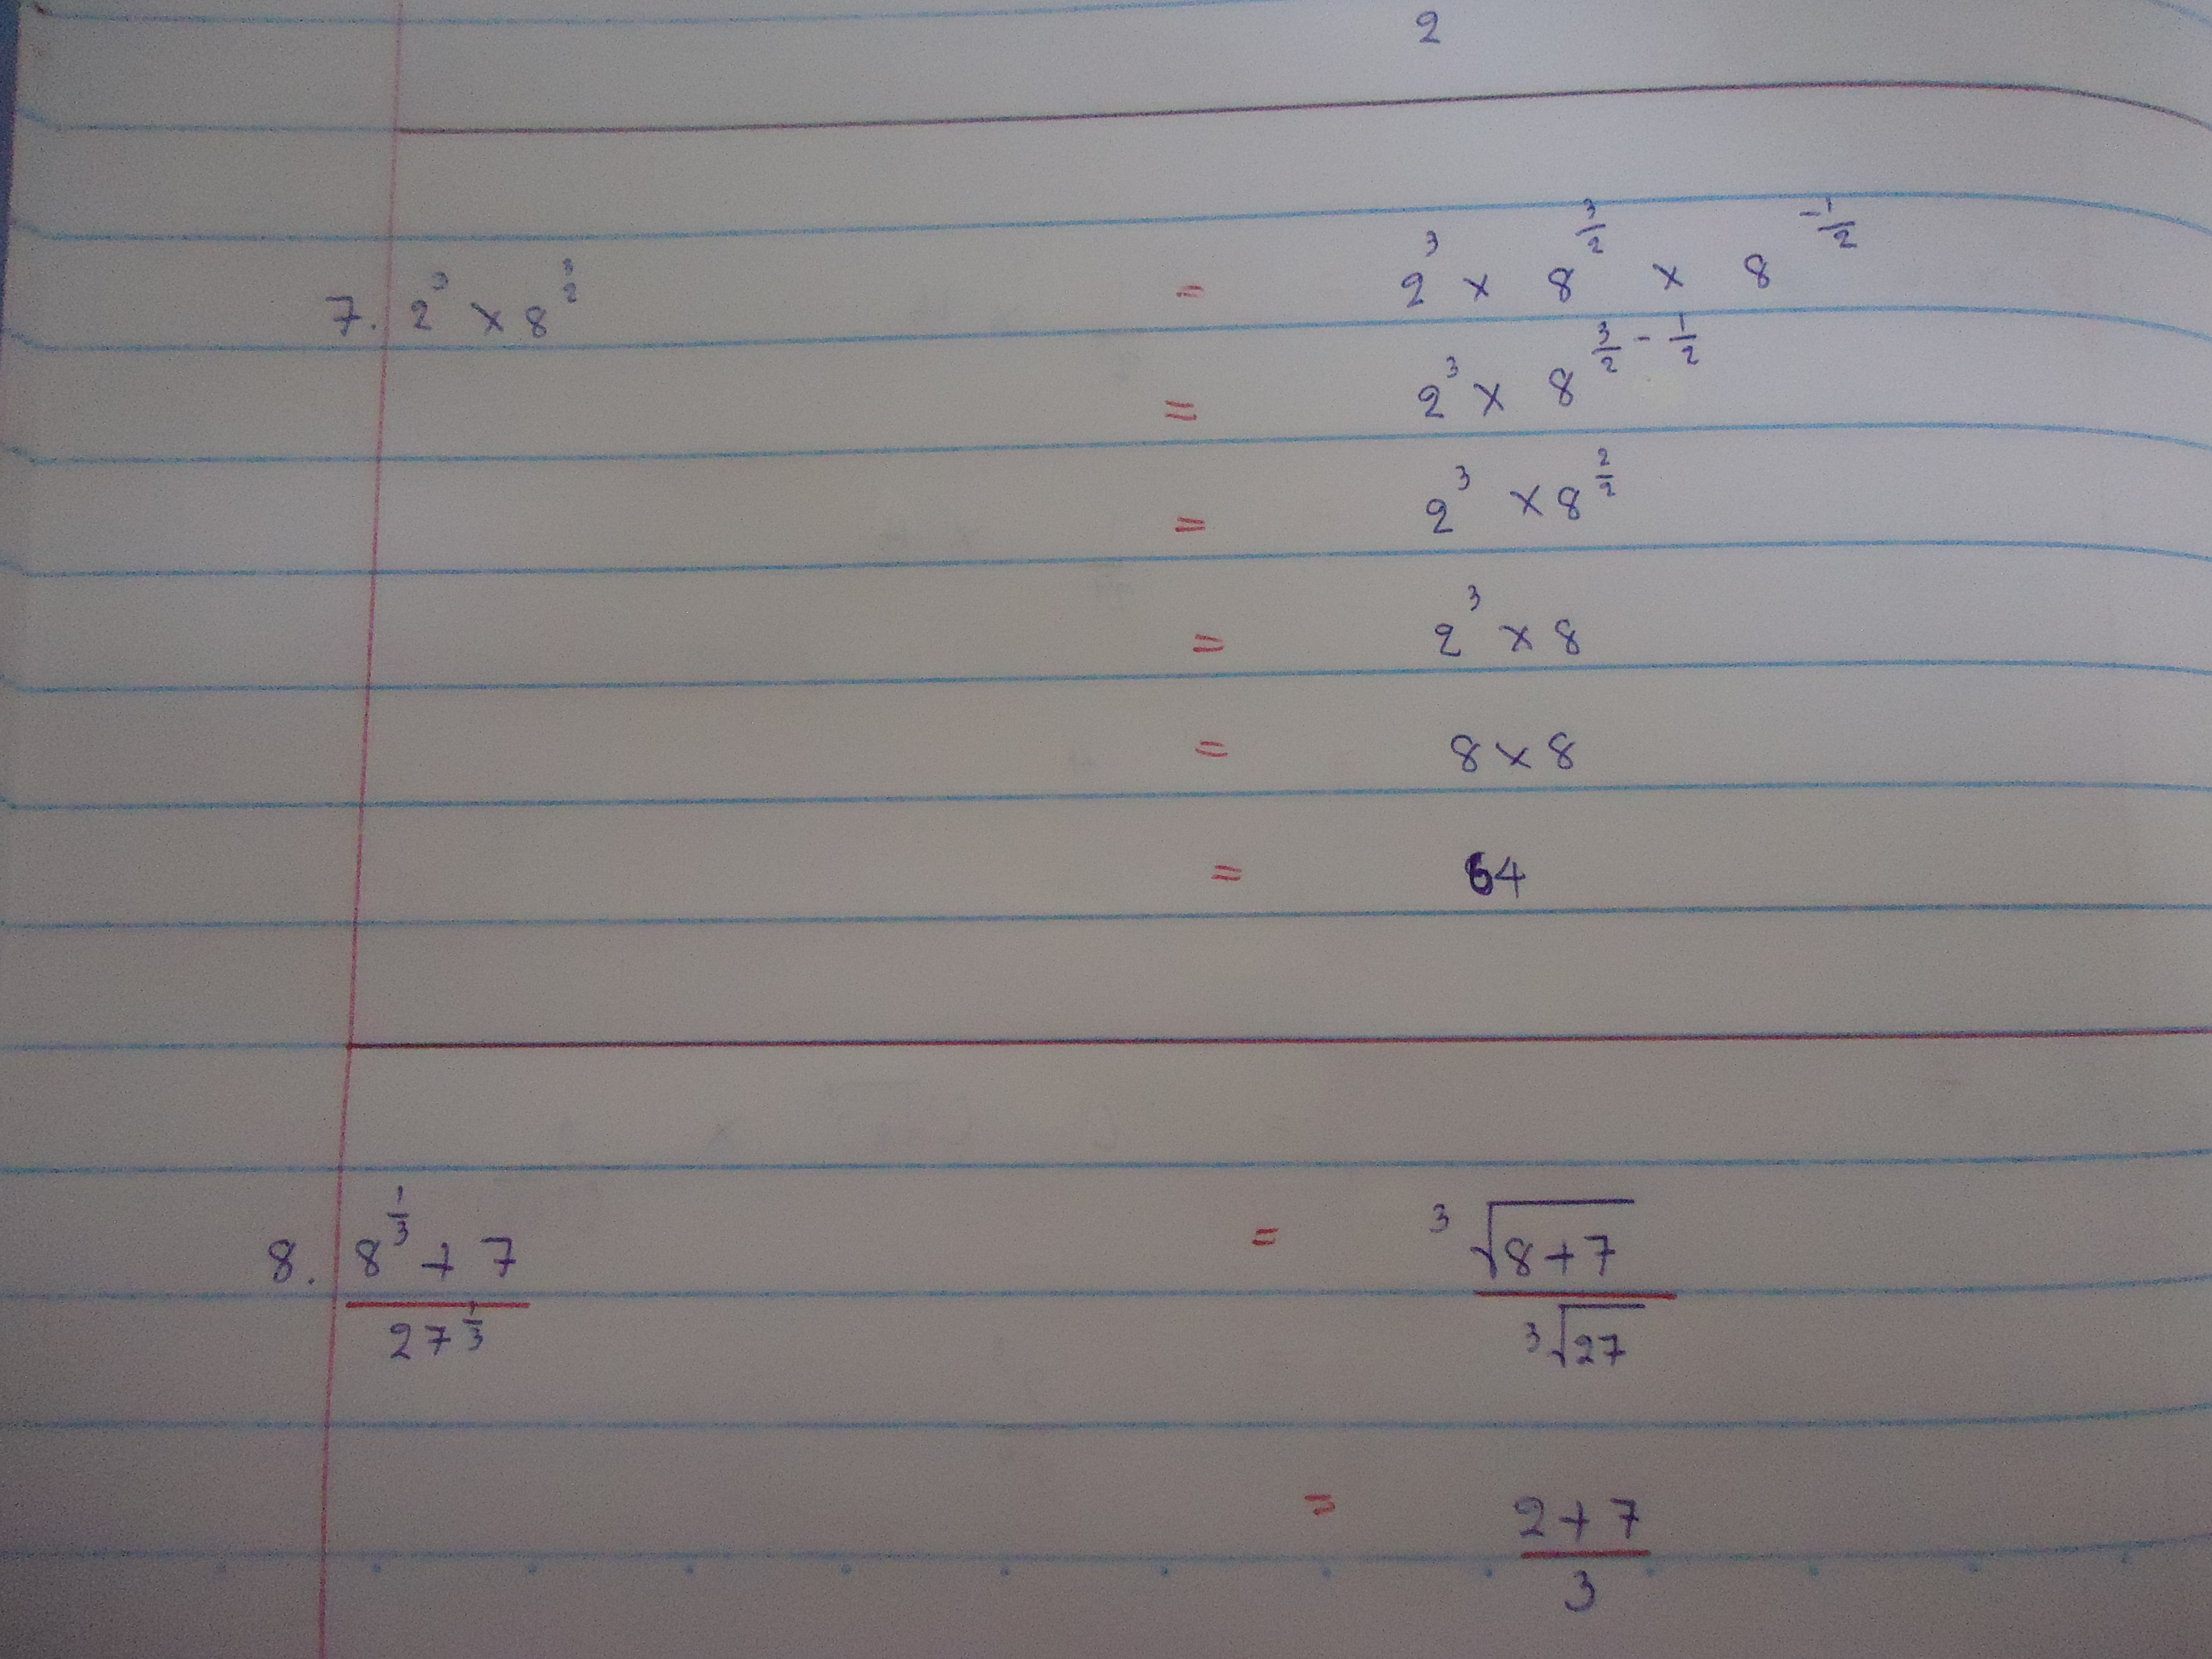 2
7. 2³ × 8^(3/2) = 2³ × 8^(3/2) × 8^(-1/2)
= 2³ × 8^(3/2 - 1/2)
= 2³ × 8^(2/2)
= 2³ × 8
= 8 × 8
= 64
8. (8^(1/3) + 7)/(27^(1/3)) = ∛(8+7)/∛27
= (2+7)/3